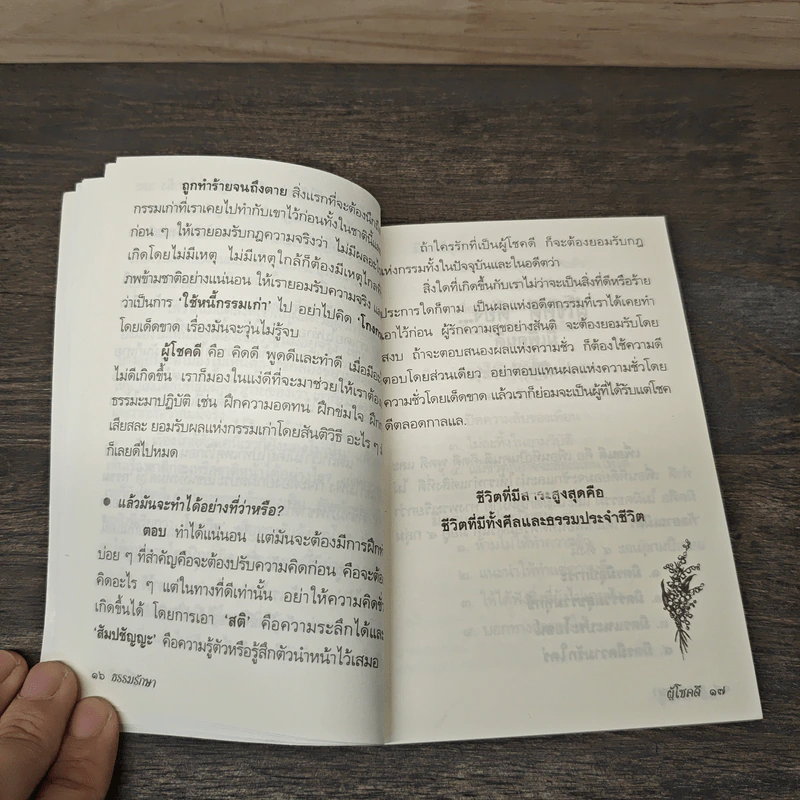 ถูกทำร้ายจนถึงตาย สิ่งแรกที่จะต้องนึก
กรรมเก่าที่เราเคยไปทำกับเขาไว้ก่อนทั้งในชาตินี้
ก่อน ๆ ให้เรายอมรับกฎความจริงว่า ไม่มีผลอะไร
เกิดโดยไม่มีเหตุ ไม่มีเหตุใกล้ก็ต้องมีเหตุไกล
ภพข้ามชาติอย่างแน่นอน ให้เรายอมรับความจริง
ว่าเป็นการ 'ใช้หนี้กรรมเก่า' ไป อย่าไปคิด 'โกง
โดยเด็ดขาด เรื่องมันจะวุ่นไม่รู้จบ
ผู้โชคดี คือ คิดดี พูดดีและทำดี เมื่อมี
ไม่ดีเกิดขึ้น เราก็มองในแง่ดีที่จะมาช่วยให้เราต้อง
ธรรมะมาปฏิบัติ เช่น ฝึกความอดทน ฝึกข่มใจ ฝึก
เสียสละ ยอมรับผลแห่งกรรมเก่าโดยสันติวิธี อะไร ๆ
ก็เลยดีไปหมด
● แล้วมันจะทำได้อย่างที่ว่าหรือ?
ตอบ ทำได้แน่นอน แต่มันจะต้องมีการฝึก
บ่อย ๆ ที่สำคัญคือจะต้องปรับความคิดก่อน คือจะต้อง
คิดอะไร ๆ แต่ในทางที่ดีเท่านั้น อย่าให้ความคิดชั่ว
เกิดขึ้นได้ โดยการเอา 'สติ' คือความระลึกได้และ
'สัมปชัญญะ' คือความรู้ตัวหรือรู้สึกตัวนำหน้าไว้เสมอ
๑๖ ธรรมรักษา
ถ้าใครรักที่เป็นผู้โชคดี ก็จะต้องยอมรับกฎ
แห่งกรรมทั้งในปัจจุบันและในอดีตว่า
สิ่งใดที่เกิดขึ้นกับเราไม่ว่าจะเป็นสิ่งที่ดีหรือร้าย
ประการใดก็ตาม เป็นผลแห่งอดีตกรรมที่เราได้เคยทำ
เอาไว้ก่อน ผู้รักความสุขอย่างสันติ จะต้องยอมรับโดย
สงบ ถ้าจะตอบสนองผลแห่งความชั่ว ก็ต้องใช้ความดี
ตอบโดยส่วนเดียว อย่าตอบแทนผลแห่งความชั่วโดย
ความชั่วโดยเด็ดขาด แล้วเราก็ย่อมจะเป็นผู้ที่ได้รับแต่โชค
ดีตลอดกาลแล.
ชีวิตที่มีสาระสูงสุดคือ
ชีวิตที่มีทั้งศีลและธรรมประจำชีวิต
ผู้โชคดี ๑๗